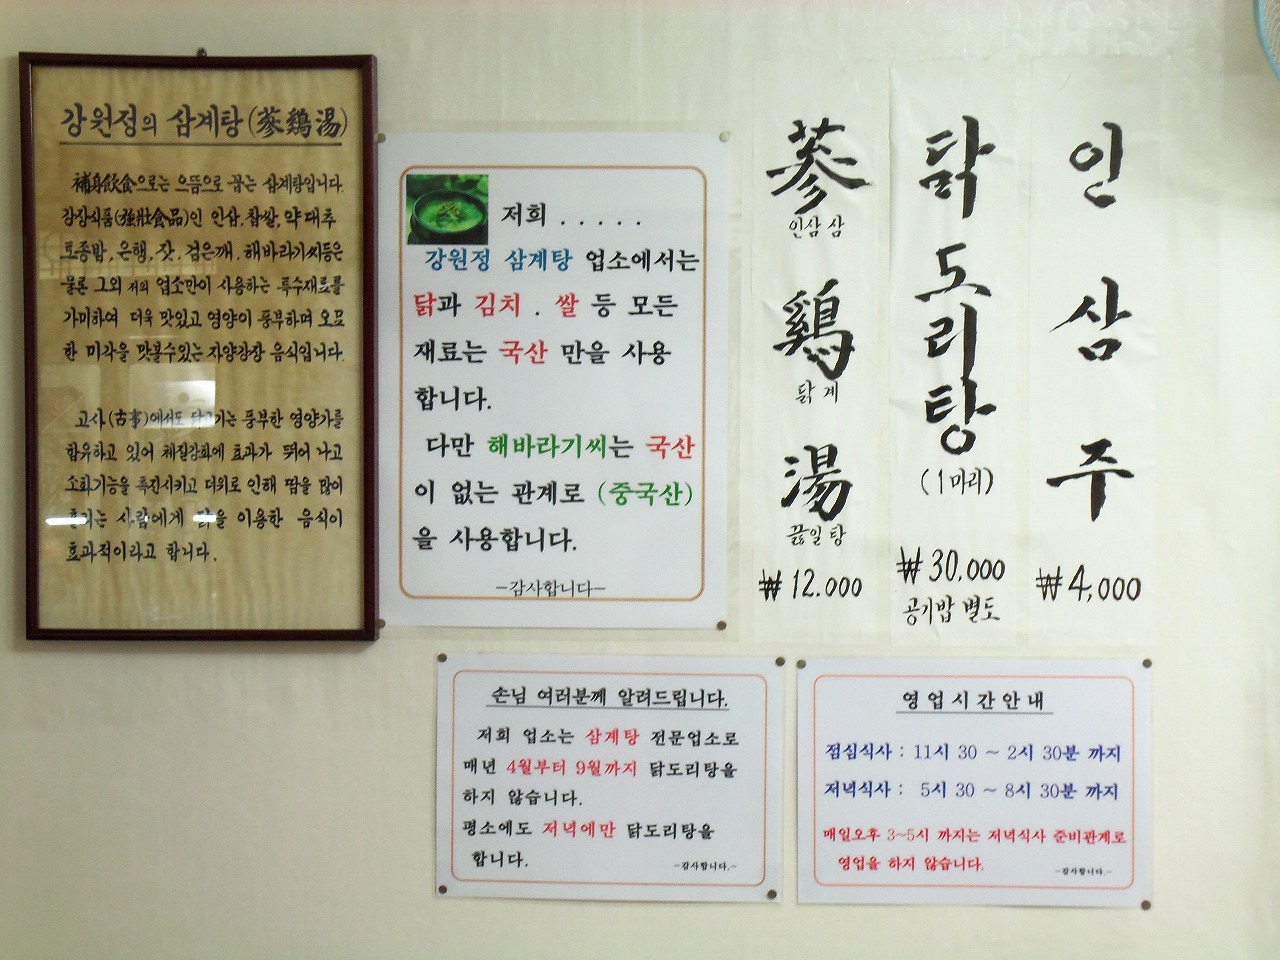 강원정의 삼계탕(蔘鷄湯)
補身飮食으로는 으뜸으로 꼽는 삼계탕입니다.
강장식품(强壯食品)인 인삼, 찹쌀, 약대추
토종밤, 은행, 잣, 검은깨, 해바라기씨등은
물론 그외 저의 업소만이 사용하는 특수재료를
가미하여 더욱 맛있고 영양이 풍부하며 오묘
한 미각을 맛볼수있는 자양강장 음식입니다.
고사(古事)에서도 닭고기는 풍부한 영양가를
함유하고 있어 체질강화에 효과가 뛰어 나고
소화기능을 촉진시키고 더위로 인해 땀을 많이
흘리는 사람에게 닭을 이용한 음식이
효과적이라고 합니다.
저희 . . . . .
강원정 삼계탕 업소에서는
닭과 김치 . 쌀 등 모든
재료는 국산 만을 사용
합니다.
다만 해바라기씨는 국산
이 없는 관계로 (중국산)
을 사용합니다.
-감사합니다-
蔘
인삼 삼
鷄
닭 계
湯
끓일 탕
₩ 12.000
닭도리탕
(1마리)
₩ 30,000
공기밥 별도
인삼주
₩ 4,000
손님 여러분께 알려드립니다.
저희 업소는 삼계탕 전문업소로
매년 4월부터 9월까지 닭도리탕을
하지 않습니다.
평소에도 저녁에만 닭도리탕을
합니다.
-감사합니다.-
영 업 시 간 안 내
점심식사 : 11시 30 ~ 2시 30분 까지
저녁식사 : 5시 30 ~ 8시 30분 까지
매일오후 3~5시 까지는 저녁식사 준비관계로
영업을 하지 않습니다.
-감사합니다.-